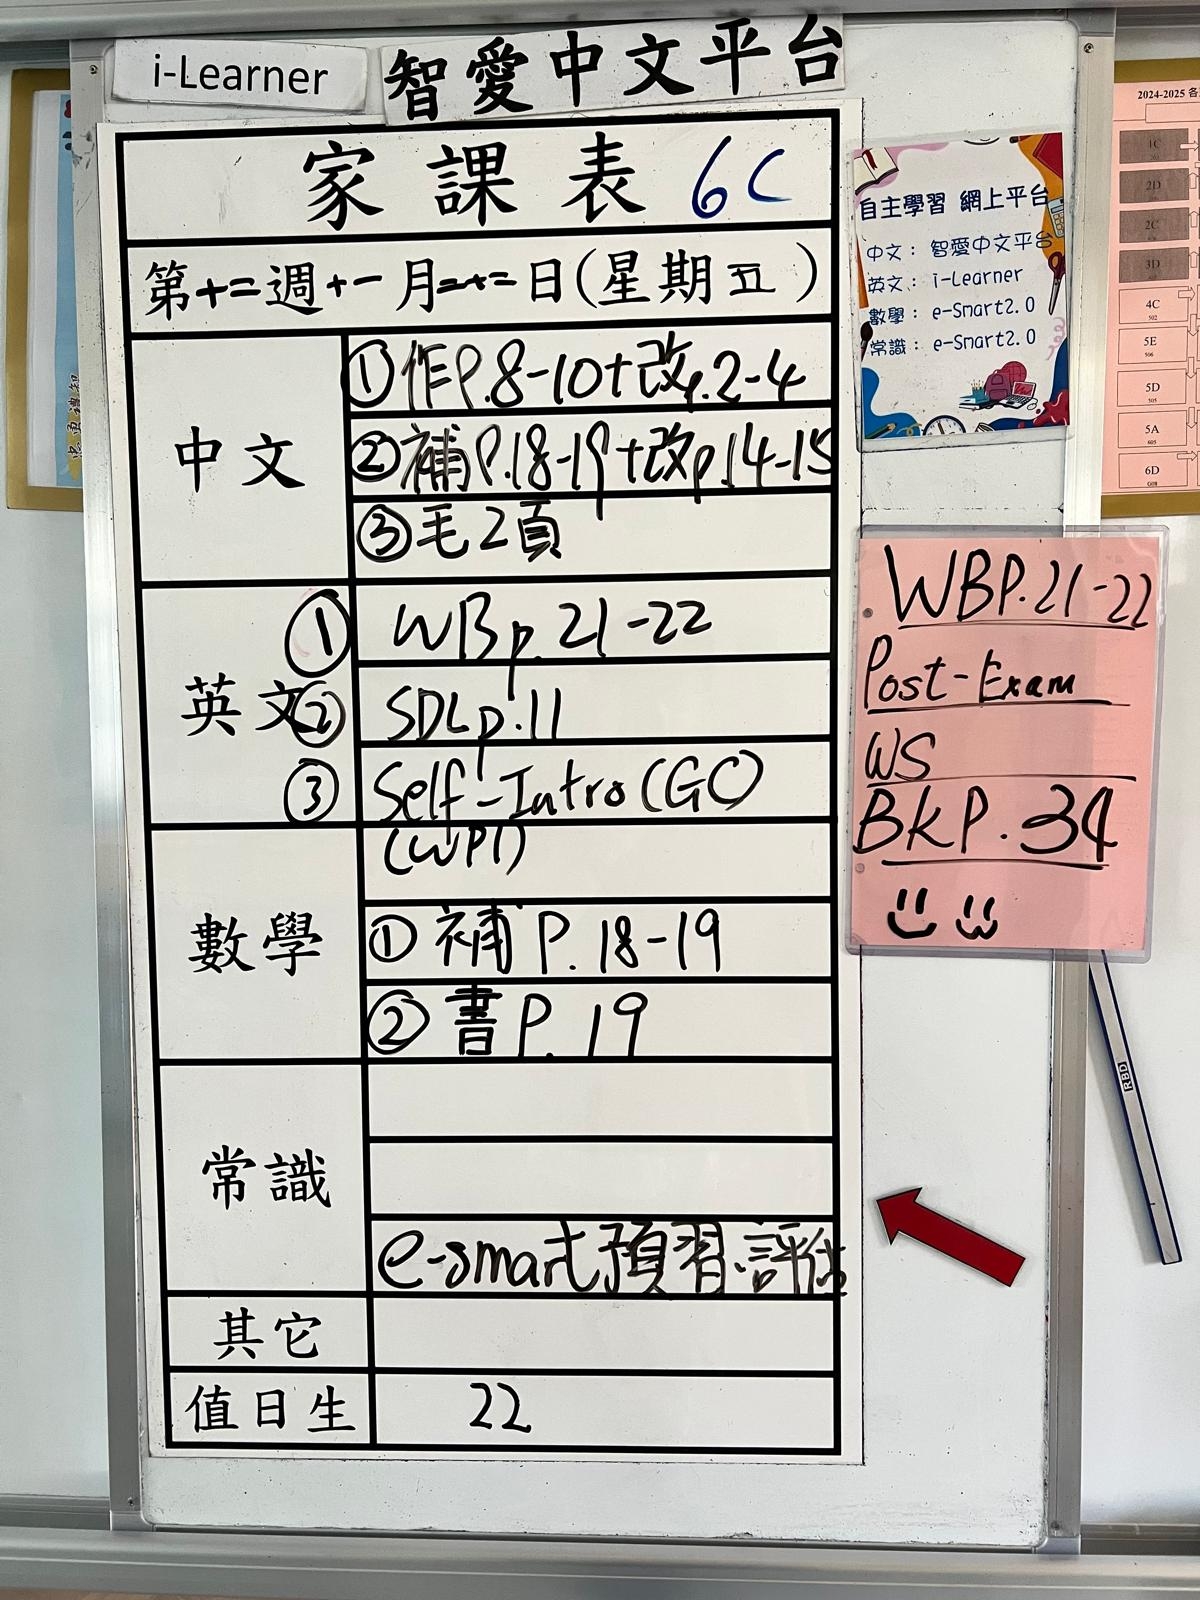 i-Learner
智愛中文平台
家課表 6C
第十二週十一月二十二日(星期五)
中文
①作P.8-10+改p.2-4
②補P.18-19+改p.14-15
③毛2頁
英文
① WBp.21-22
② SDLp.11
③ Self-Intro(GC)
(WP1)
數學
①補P.18-19
②書P.19
常識
e-smart預習.評估
其它
值日生
22
自主學習 網上平台
中文：智愛中文平台
英文：i-Learner
數學：e-Smart2.0
常識：e-Smart2.0
WBP.21-22
Post-Exam
WS
BkP.34
2024-2025 各
1C
2D
2C
3D
4C
502
5E
506
5D
505
5A
605
6D
G08
RBD